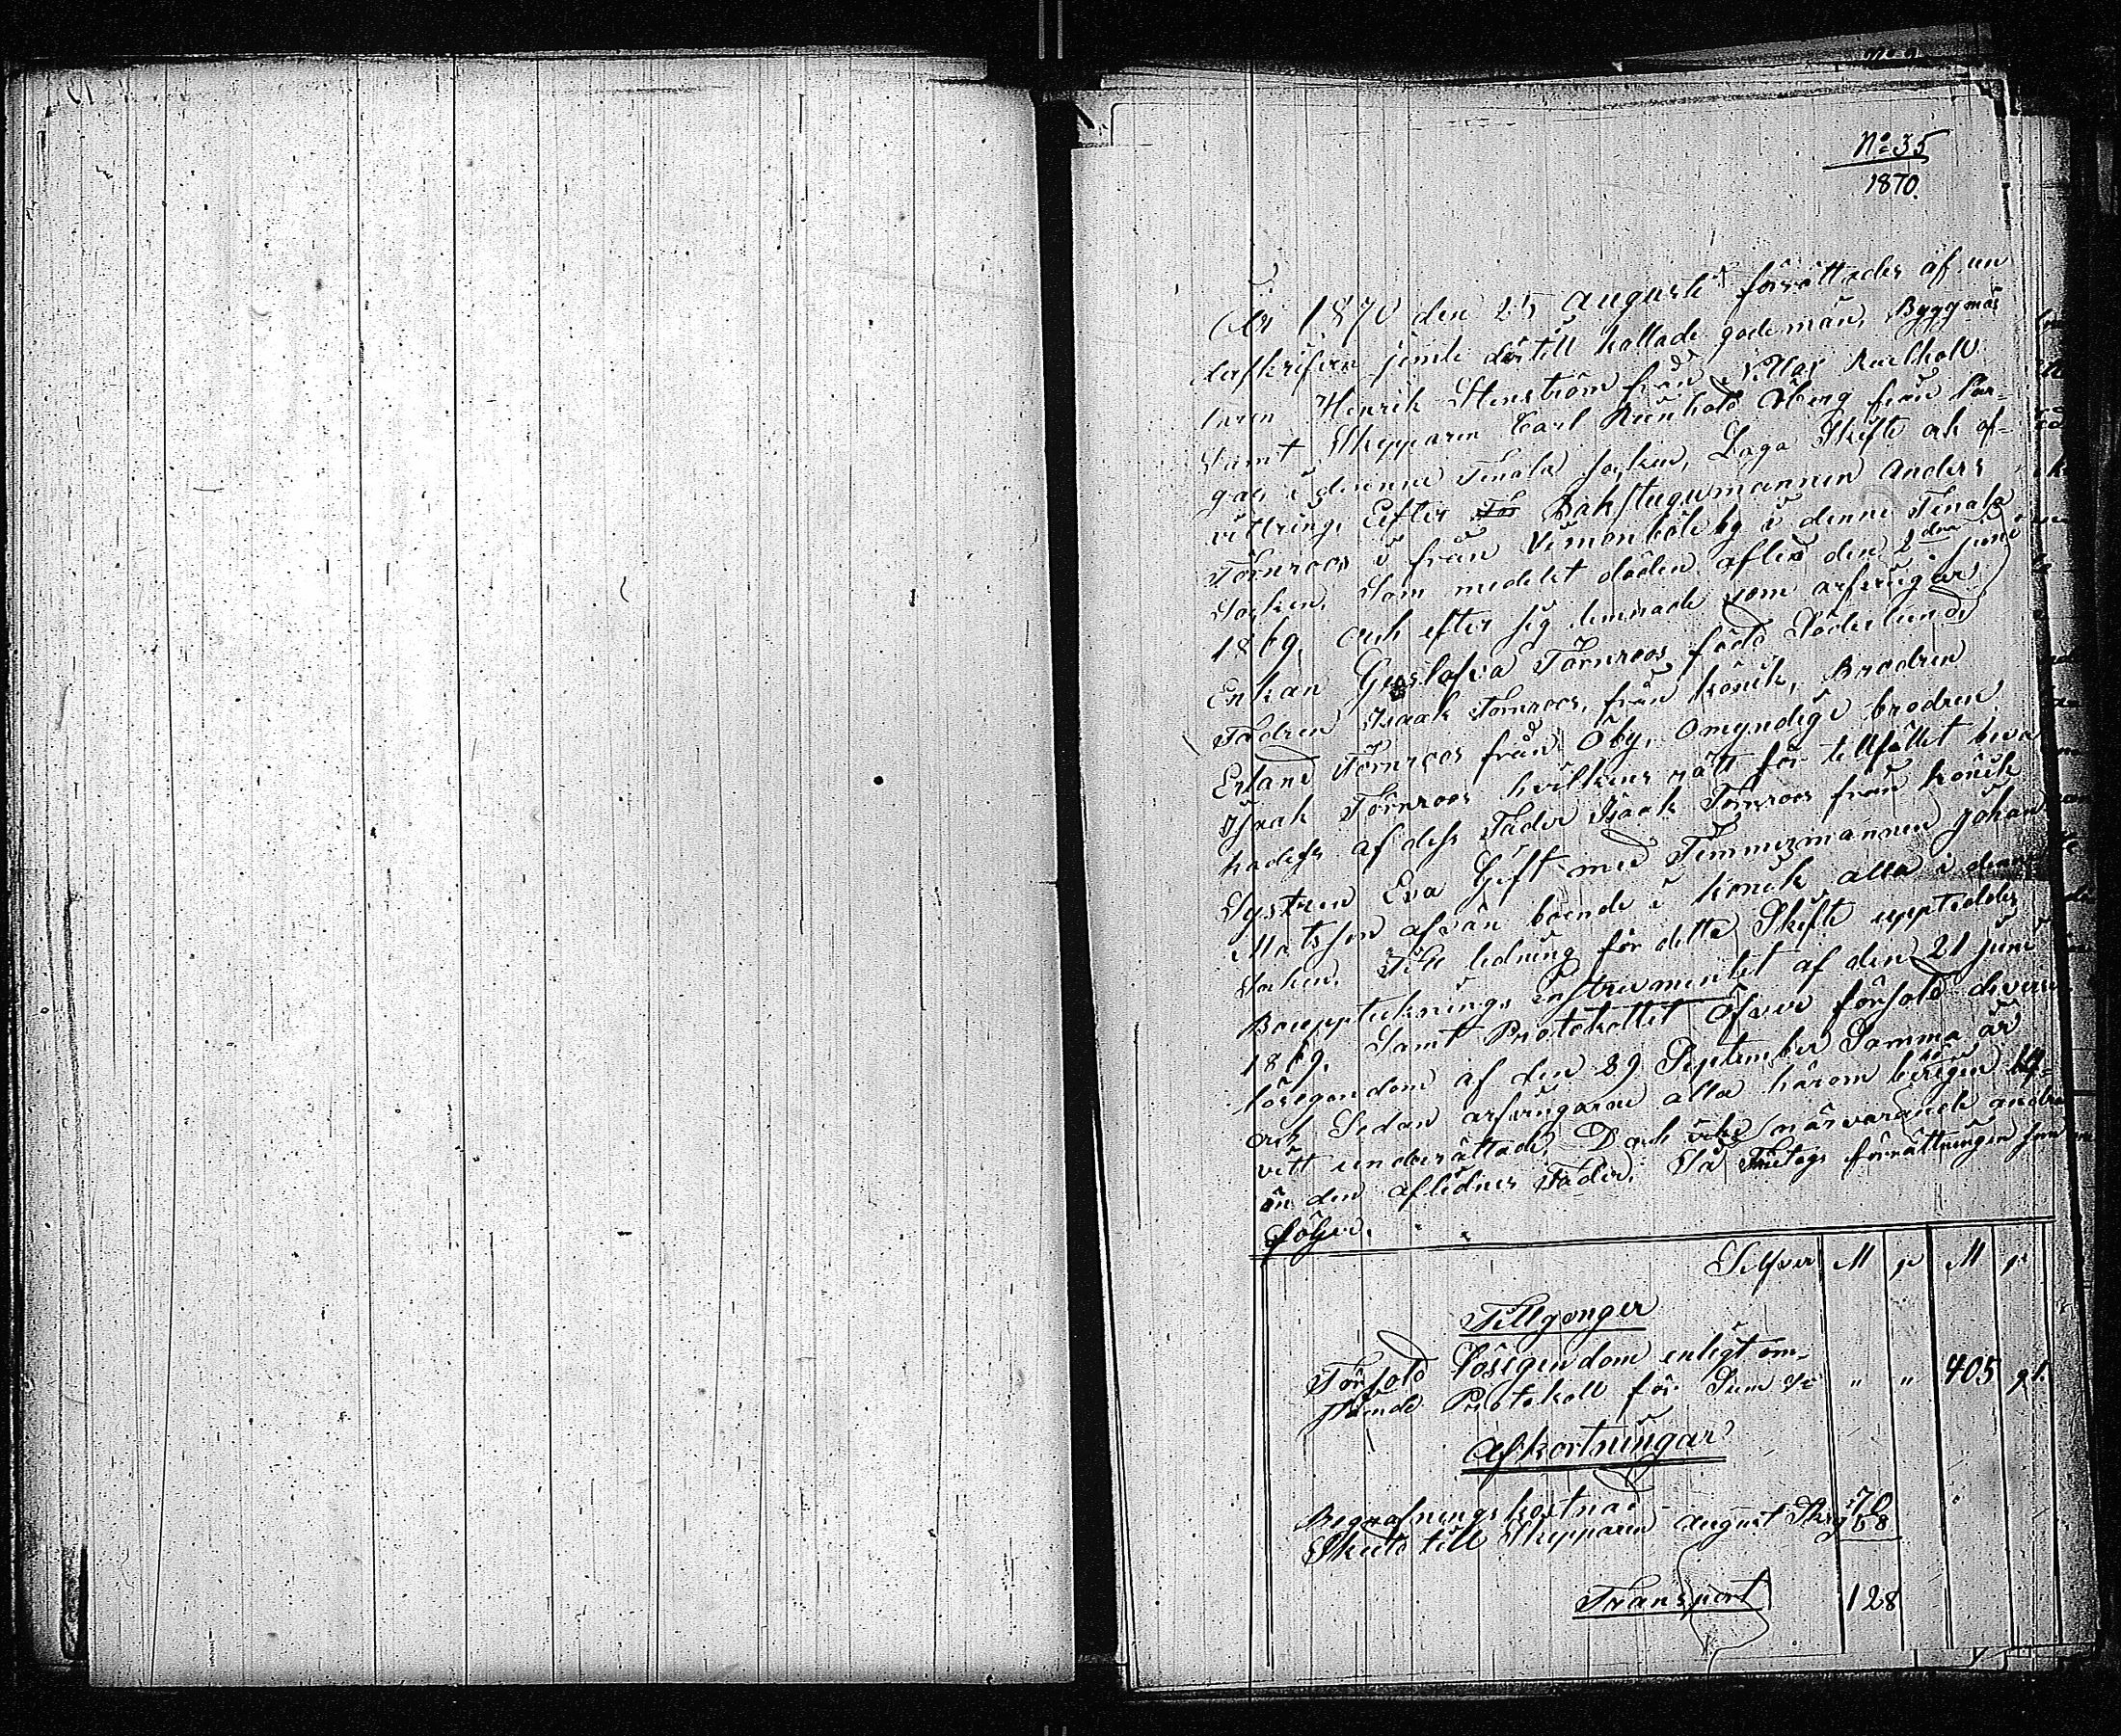 No 35
1870
År 1870 den 25 Augusti förrättades af un
dertskrifven jemte dertill kallade godemän, Byggmäs
taren Henrik Stenström från
Samt Skepparen Carl Reinhold Öberg från
i denna Tenala socken, Laga Skifte och af-
vittring, Eefter Bakstugumannen Anders
Törnroos i från Vemonböle by i denne Tenala
Socken, Som medelst döden afled den 2den juni
1869, och efter sig lemnade som arfvingar
Enkan Gustafva Törnroos född Söderlund,
Fadren Isaak Törnroos, från könik, Brodren
Erland Törnroos från Öby, Omyndige brodren
Isaak Törnroos hvilkens rätt för tillfället beva
kades af dess Fader Isaak Törnroos från könik
Systren Eva Gift med Timmermannen johan
Matsson afvän boende i könik alla i denna
Socken. Till ledning för dette Skifte uppteddes
Bouppteknings instrumentet af den 21 juni
1869. Samt Protokollet öfver försold diverse
lösegendom af den 29 September Samma år
och Sedan arfvingarne alla härom
vitt underrättade, Dock icke närvarande andra
än den aflednes Fader. Så Företogs förrättningen som
följer.
Silfver M p M p
Tillgonger
Försold Lösegendom enligt om-
stående Protokoll för Sum " " 405 91.
Afkortningar
Begrafningskostnad 70
Skuld till Skepparen August 58
Transport 128